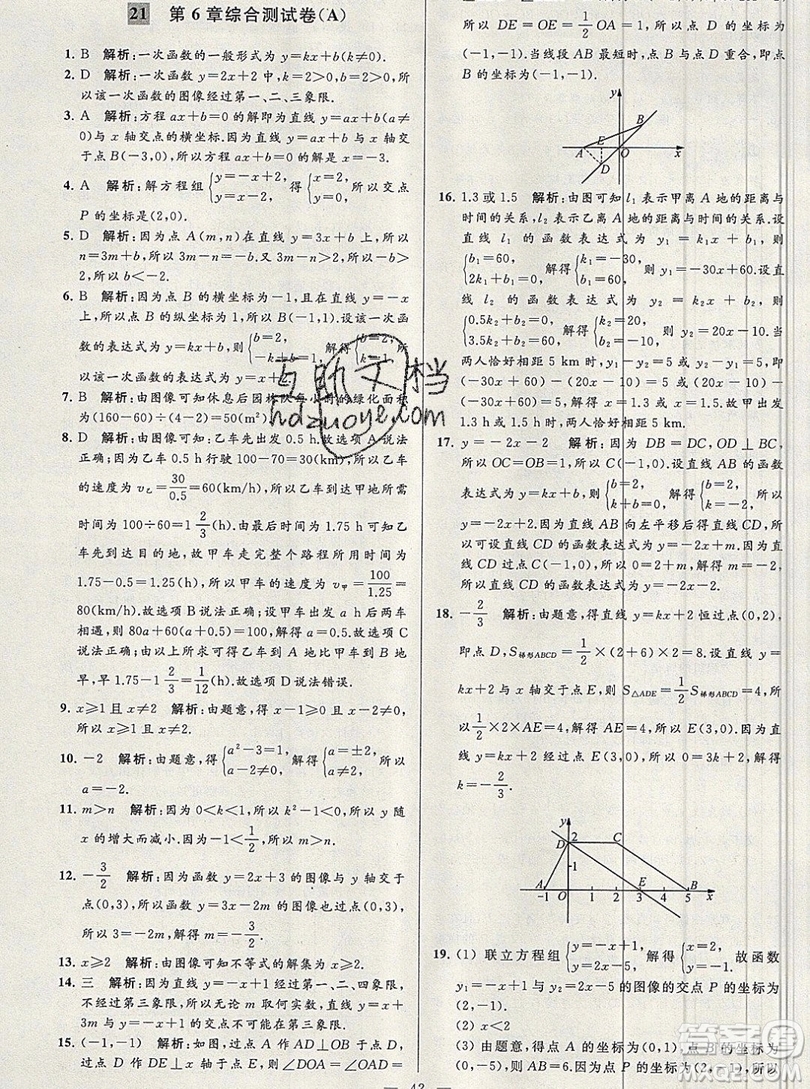 21 第6章综合测试卷(A)
1. B 解析:一次函数的一般形式为 y=kx+b(k≠0).
2. D 解析:因为一次函数 y=2x+2 中,k>0,b>0,所
以该一次函数的图像经过第一、二、三象限.
3. A 解析:方程 ax+b=0 的解即为直线 y=ax+b(a≠
0)与 x 轴交点的横坐标.因为直线 y=ax+b 与 x 轴交
于点 B(-3,0),所以方程 ax+b=0 的解是 x=-3.
4. A 解析:解方程组{y=-x+2, y=x-2, 得{x=2, y=0, 所以交点
P 的坐标是(2,0).
5. D 解析:因为点 A(m,n)在直线 y=3x+b 上,所以
n=3m+b,所以 3m-n=-b.又因为 3m-n>2,所以
-b>2,所以 b<-2.
6. B 解析:因为点 B 的横坐标为-1,且点 B 在 y=-x
上,所以点 B 的纵坐标为 1,所以 B(-1,1).设该一次函
数的表达式为 y=kx+b,则{b=2, -k+b=1, 解得{b=2, k=1, 所
以该一次函数的表达式为 y=x+2.
7. B 解析:由图像可知休息后园林队每小时的绿化面积
为(160-60)÷(4-2)=50(m²).
8. D 解析:由图像可知:乙车先出发 0.5 h.故选项 A 说法
正确;因为乙车 0.5 h 行驶 100-70=30(km),所以乙车
的速度为 v乙=30/0.5=60(km/h),所以乙车到达甲地所需
时间为 100÷60=1 2/3(h).由最后时间为 1.75 h 可知乙
车先到达目的地,故甲车走完整个路程所用时间为
1.75-0.5=1.25(h),所以甲车的速度为 v甲=100/1.25=
80(km/h).故选项 B 说法正确;设甲车出发 a h 后两车
相遇,则 80a+60(0.5+a)=100,解得 a=1/2.故选项 C
说法正确;由以上所求可得乙车到达目的地时间比甲车
早,早 1.75-1 2/3=1/12(h).故选项 D 说法错误.
9. x≥1 且 x≠2 解析:由题意,得 x-1≥0 且 x-2≠0,
所以 x≥1 且 x≠2.
10. -2 解析:由题意,得{a²-3=1, a-2≠0, 解得{a=±2, a≠2, 所以
a=-2.
11. m>n 解析:因为 0<k<1,所以 k²-1<0,所以 y 随
x 的增大而减小.因为-1<1/2,所以 m>n.
12. -3/2 解析:因为函数 y=2x+3 的图像与 y 轴交于
点(0,3),所以函数 y=3x-2m 的图像也过点(0,3),
所以 3=-2m,解得 m=-3/2.
13. x≥2 解析:由图像可知不等式的解集为 x≥2.
14. 三 解析:因为直线 y=-x+4 经过第一、二、四象限,
不经过第三象限,所以无论 m 取何实数,直线 y=x+
m 与 y=-x+4 的交点不可能在第三象限.
15. (-1,-1) 解析:过点 A 作 AD⊥OB 于点 D,过点 D
作 DE⊥x 轴于点 E.由题意,得∠DOA=∠OAD=
所以 DE=OE=1/2 OA=1,所以点 D 的坐标为
(-1,-1).当线段 AB 最短时,点 B 与点 D 重合,即点
B 的坐标为(-1,-1).
y
B
A E O x
D
16. 1.3 或 1.5 解析:由图可知 l₁ 表示甲离 A 地的距离与
时间的关系,l₂ 表示乙离 A 地的距离与时间的关系.设
直线 l₁ 的函数表达式为 y₁=k₁x+b₁,则
{b₁=60, 2k₁+b₁=0, 解得{k₁=-30, b₁=60, 则 y₁=-30x+60.设直
线 l₂ 的函数表达式为 y₂=k₂x+b₂,则
{0.5k₂+b₂=0, 3.5k₂+b₂=60, 解得{k₂=20, b₂=-10, 则 y₂=20x-10.当
两人恰好相距 5 km 时,y₁-y₂=5 或 y₂-y₁=5,即
(-30x+60)-(20x-10)=5 或(20x-10)-
(-30x+60)=5,解得 x=1.3 或 x=1.5.故甲出发
1.3 h 或 1.5 h 时,两人恰好相距 5 km.
17. y=-2x-2 解析:因为 DB=DC,OD⊥BC,
所以 OC=OB=1,所以 C(-1,0).设直线 AB 的函数
表达式为 y=kx+b,则{b=2, k+b=0, 解得{b=2, k=-2, 所以
y=-2x+2.因为直线 AB 向左平移后得到直线 CD,所
以可设直线 CD 的函数表达式为 y=-2x+m.因为直
线 CD 过点 C(-1,0),所以 0=2+m,解得 m=-2,所
以直线 CD 的函数表达式为 y=-2x-2.
18. -2/3 解析:由题意,得直线 y=kx+2 恒过点(0,2),
即点 D,S梯形ABCD=1/2×(2+6)×2=8.设直线 y=
kx+2 与 x 轴交于点 E,则 S△ADE=1/2 S梯形ABCD=4,所
以 1/2×2×AE=4,解得 AE=4,所以 E(3,0).因为直线
y=kx+2 经过点 E(3,0),所以 0=3k+2,解得
k=-2/3.
y
D 2 C
1
A E B
-1 O 1 2 3 4 5 x
19. (1) 联立方程组{y=-x+1, y=2x-5, 解得{x=2, y=-1, 故函数
y₁=-x+1 与 y₂=2x-5 的图像的交点 P 的坐标为
(2,-1).
(2) x<2
(3) 由题意,得点 A 的坐标为(0,1),点 B 的坐标为
(0,-5),所以 AB=6.因为点 P 的坐标为(2,-1),所
43
互助文档
hdzuoye.com